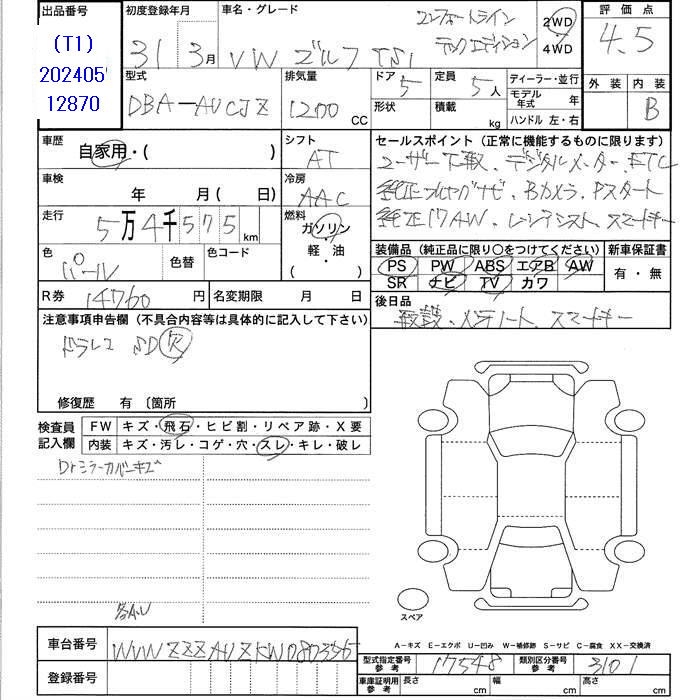 出品番号
(T1)
202405
12870
初度登録年月
31年 3月
車名・グレード
VW ゴルフ TSI
コンフォートライン
テックエディション
2WD
4WD
評価点
4.5
外装 内装
B
型式
DBA-AUCJZ
排気量
1200 CC
ドア
5
形状
定員
5人
積載
kg
ディーラー・並行
モデル年式 年
ハンドル 左・右
車歴
自家用・( )
シフト
AT
車検
年 月(日)
冷房
AAC
走行
5万4千575km
燃料
ガソリン
軽・油
・( )
色
パール
色替
色コード
R券
14760円
名変期限 月 日
セールスポイント(正常に機能するものに限ります)
ユーザー下取、デジタルメーター、ETC
純正ナビ、Bカメラ、Pスタート
純正17AW、レーンアシスト、スマートキー
装備品(純正品に限り○をつけてください)
PS PW ABS エアB AW
SR ナビ TV カワ
新車保証書
有・無
後日品
取説・メンテノート、スマートキー
注意事項申告欄(不具合内容等は具体的に記入して下さい)
ドラレコ SD欠
修復歴 有 〔箇所 〕
検査員
記入欄
FW キズ・飛石・ヒビ割・リペア跡・X要
内装 キズ・汚レ・コゲ・穴・スレ・キレ・破レ
Drミラーカバーキズ
スペア
A-キズ E-エクボ U-凹み W-補修跡 S-サビ C-腐食 XX-交換済
車台番号
WVWZZZAUZKW080356
登録番号
型式指定番号
参考
17548
類別区分番号
参考
3101
車庫証明用
参考
長さ cm
幅 cm
高さ cm